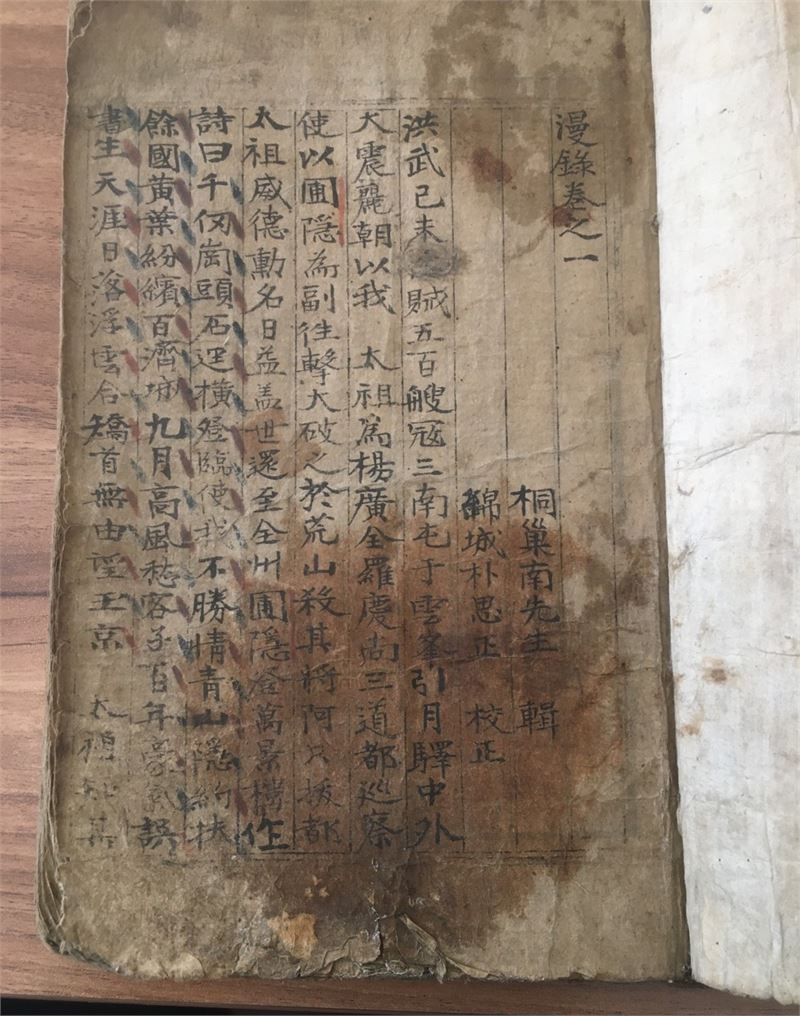 漫錄卷之一
桐巢南先生 輯
綿城朴思正 校正
洪武己未 賊五百艘寇三南屯于雲峯引月驛中外
大震麗朝以我 太祖爲楊廣全羅慶尚三道都巡察
使以圃隱為副徃擊大破之於荒山殺其將阿只拔都
太祖威德勳名日益盖世還至全州圃隱登萬景樓作
詩曰千仞崗頭石逕橫登臨使我不勝情青山隱約扶
餘國黃葉紛繽百濟城九月高風愁客子百年豪氣誤
書生天涯日落浮雲合矯首無由望玉京 太祖知其